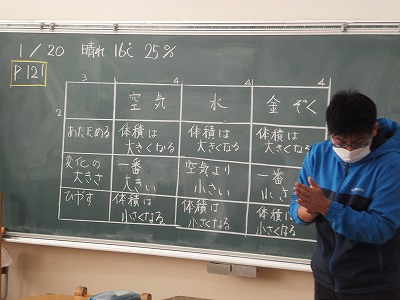 1/20 晴れ 16℃ 25%
P121
3 4 4 4
2
空気 水 金ぞく
あたためる 体積は大きくなる 体積は大きくなる 体積は大きくなる
変化の大きさ 一番大きい 空気より小さい 一番小さい
ひやす 体積は小さくなる 体積は小さくなる 体積は小さくなる